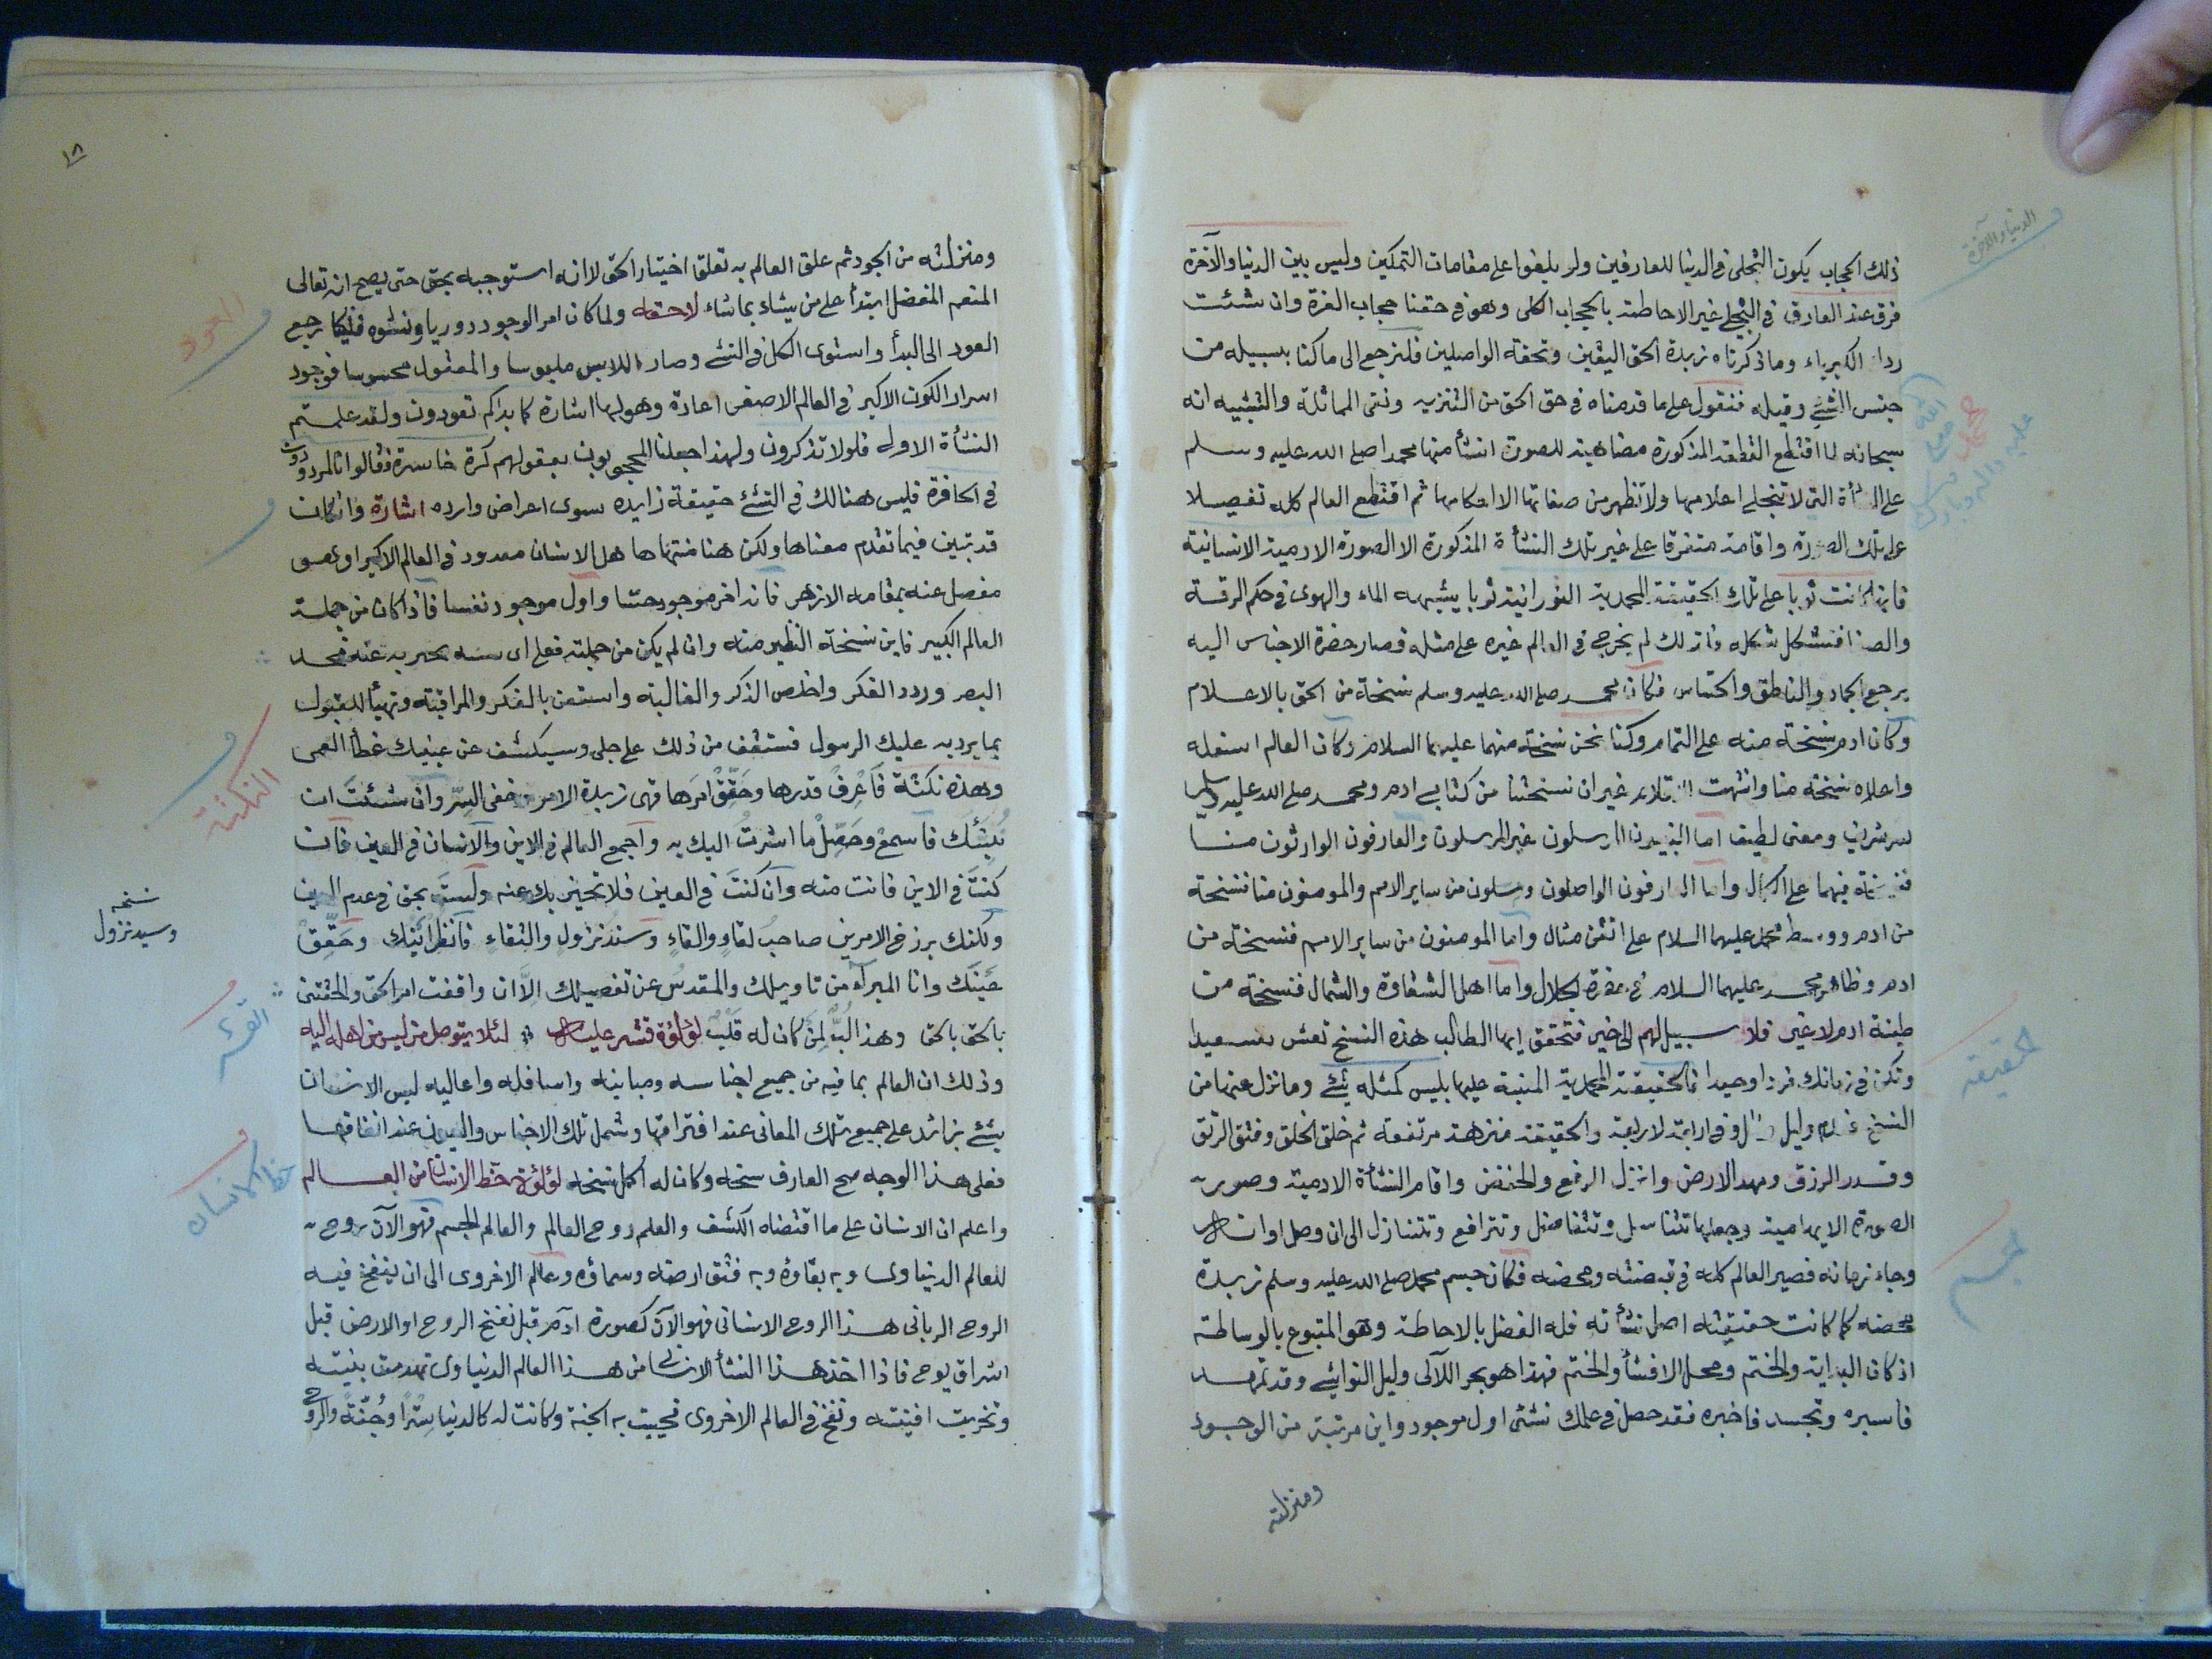 ذلك الحجاب يكون التجلى فى الدنيا للعارفين ولو بلغوا على مقامات التمكين وليس بين الدنيا والآخرة
فرق عند العارف فى التجلى غير الاحاطة بالحجاب الكلى وهو فى حقنا حجاب العزة وان شئت
رداء الكبرياء وما ذكرناه زبدة الحق اليقين وتحفة الواصلين فلنرجع الى ما كنا بسبيله من
جنس الشئ وقبله فنقول على ما قدمناه فى حق الحق من التنزيه ونفى المماثلة والتشبيه انه
سبحانه لما اقتطع القطعة المذكورة مضاهية للصورة انشأ منها محمدا صلى الله عليه وسلم
على النشأة التى لا تنجلى اعلامها ولا تظهر من صفاتها الا احكامها ثم اقتطع العالم كله تفصيلا
على تلك الصورة واقامه متفرقا على غير تلك النشأة المذكورة الا الصورة الادمية الانسانية
فانها كانت ثوبا على تلك الحقيقة المحمدية النورانية ثوبا يشبه الماء والهوى فى حكم الرقة
والصفا فتشكل شكله فلذلك لم يخرج فى العالم غيره على مثله فصار حضرة الاجناس اليه
يرجع الجماد والناطق والحساس فكان محمد صلى الله عليه وسلم نسخة من الحق بالاعلام
وكان ادم نسخة منه على التمام وكنا نحن نسخة منهما عليهما السلام وكان العالم اسفله
واعلاه نسخة منا وانتهت الاقلام غير ان نسختنا من كتابى ادم ومحمد صلى الله عليه وسلم
سر شريف ومعنى لطيف اما النبيون المرسلون غير المرسلون والعارفون الوارثون منا
فنسخة منهما على الكمال واما العارفون الواصلون وسلون من ساير الامم والمومنون منا فنسخة
من ادم ووسط محمد عليهما السلام على اتقن مثال واما المومنون من ساير الامم فنسخة من
ادم وظاهر محمد عليهما السلام فى حضرة الجلال واما اهل الشقاوة والشمال فنسخة من
طينة ادم لا غير فلا سبيل لهم الى خير فتحقق ايها الطالب هذه النسخ تعش سعيدا
وتكن فى زمانك فردا وحيدا فالحقيقة المحمدية المنبة عليها بليس كمثله شئ وما نزل عنها من
النسخ وليل وفى لرابعة والحقيقة منزهة مرتفعة ثم خلق الخلق وفتق الرتق
وقدر الرزق ومهد الارض وانزل الرفع والخفض واقام النشأة الادمية وصور
الصورة الابراهمية وجعلها تتناسل وتتفاضل وتترافع وتتنازل الى ان وصل اوانه
وجاء زمانه فصير العالم كله فى قبضته ومخضه فكان جسم محمد صلى الله عليه وسلم زبدة
مخضه كما كانت حقيقته اصل نشأته فله الفضل بالاحاطة وهو المتبوع بالوساطة
اذ كان البداية والختم ومحل الافشأ والختم فهذا هو بحر اللآلى وليل النواشئ وقد تمهد
فاسبره وتجسد فاخبره فقد حصل فى علمك نشئ اول موجود واين مرتبته من الوجود
ومنزلته
الدنيا والآخرة
محمد
صلى الله
الحقيقة
جسم
١٨
ومنزلته من الجود ثم علق العالم به تعلق اختيار الحق لا انه استوجبه بحق حتى يصح انه تعالى
المنعم المفضل ابتدأ على من يشاء بما شاء لاحقه ولما كان امر الوجود دوريا ونشوه فلكيا رجع
العود الى البدأ واستوى الكل فى النشئ وصار اللابس ملبوسا والمعقول محسوسا فوجود
اسرار الكون الاكبر فى العالم الاصغر اعادة وهو لها اشارة كما بداكم تعودون ولقد علمتم
النشأة الاولى فلولا تذكرون ولهذا جعلنا المحجوبون بعقولهم كرة خاسرة فقالوا ائنا لمردودون
فى الحافرة فليس هنالك فى النشئ حقيقة زايده سوى اعراض وارده اشارة وان كان
قد تبين فيما تقدم معناها ولكن هنا منتهاها هل الانسان معدود فى العالم الاكبر او هو
مفصل عنه بمقامه الازهر فانه اخر موجود حسا واول موجود نفسا فاذا كان من جملة
العالم الكبير فاين نسخة النظير منه وان لم يكن من جملته فعلى اى نسبة بحر به عنه فحد
البصر وردد الفكر واخلص الذكر والمغالبة واستعن بالفكر والمراقبة وتهيأ للقبول
بما يرد به عليك الرسول فستقف من ذلك على جلى وسيكشف عن عينيك غطأ العمى
وهذه نكتة فاعرف قدرها وحقق امرها فهى زبدة الامر وخفى السر وان شئت ان
نبينك فاسمع وحصل ما اشرت اليك به واجمع العالم فى الاين والانسان فى العين فان
كنت فى الاين فانت منه وان كنت فى العين فلا تحيز بك عنه ولست بحق فى عدم البين
ولكنك برزخ الامرين صاحب لقاء والقاء وسند نزول والتقاء فانظر اينك وحقق
عينك وانا المبرأ من تاويلك والمقدس عن تفصيلك الا ان واقفت امر الحق والحقتنى
بالحق بالحق وهذا لب لمن كان له قلب لؤلؤة نشر عليك لئلا يتوصل من ليس من اهله اليه
وذلك ان العالم بما فيه من جميع اجناسه ومباينه واسافله واعاليه ليس الانسان
بشئ بزائد على جميع تلك المعانى عند افتراقها وشمل تلك الاجناس والعيون عند اتفاقها
فعلى هذا الوجه صح العارف سخه وكان له اكمل نسخة لؤلؤة حظ الانسان من العالم
واعلم ان الانسان على ما اقتضاه الكشف والعلم روح العالم والعالم الجسم فهو الآن روح
للعالم الدنياوى وبه بقاؤه وبه فتق ارضه وسماؤه وعالم الاخروى الى ان ينفخ فيه
الروح الربانى هذا الروح الانسانى فهو الآن كصورة ادم قبل نفخ الروح او الارض قبل
اشراق يوح فاذا اخذ هذا النشأ الانسانى من هذا العالم الدنياوى تهدمت بنيته
وتخربت افنيته ونفخ فى العالم الاخروى فحييت به الجنة وكانت له كالدنيا سترا وجنة والروح
العود
النكتة
نسخه
وسيد نزول
القشر
حظ الانسان